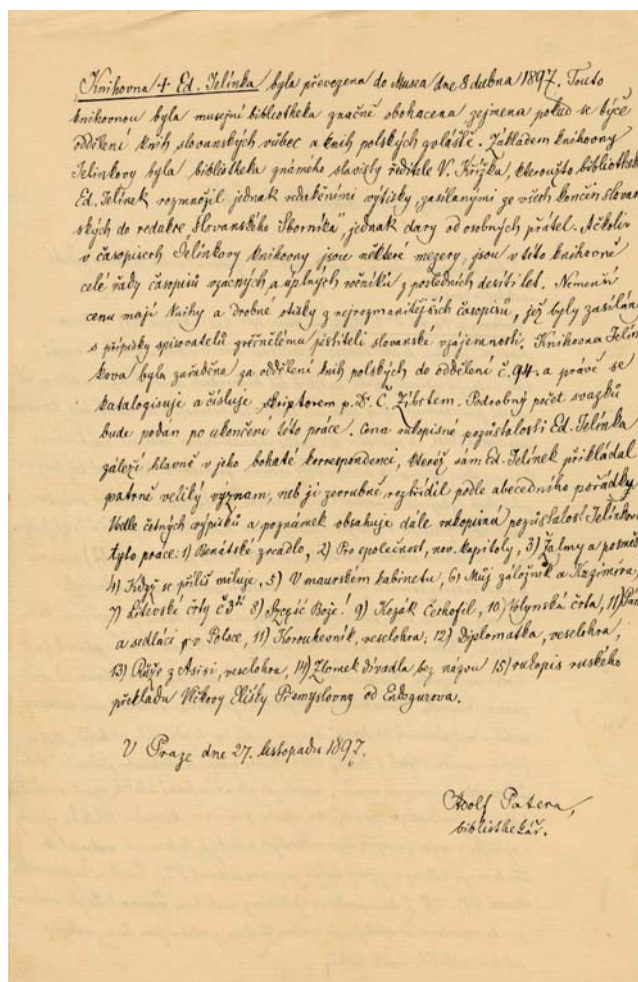 Knihovna † Ed. Jelínka byla převezena do Musea dne 8 dubna 1897. Touto
knihovnou byla musejní bibliotheka značně obohacena zejmena pokud se týče
oddělení knih slovanských vůbec a knih polských zvláště. Základem knihovny
Jelínkovy byla bibliotheka známého slavisty ředitele V. Křížka, kteroužto bibliotheku
Ed. Jelínek rozmnožil jednak redakčními výtisky, zasílanými ze všech končin slovan-
ských do redakce „Slovanského Sborníka", jednak dary od osobných přátel. Ačkoliv
v časopisech Jelínkovy knihovny jsou některé mezery, jsou v této knihovně
celé řady časopisů vzácných a úplných ročníků z posledních desíti let. Nemenší
cenu mají knihy a drobné otisky z nejrozmanitějších časopisů, jež byly zasílány
s přípisky spisovatelů zvěčnělému pěstiteli slovanské vzájemnosti. Knihovna Jelín-
kova byla zařaděna za oddělení knih polských do oddělení č. 94. a právě se
katalogisuje a čísluje skriptorem p. Dr. Č. Zíbrtem. Podrobný počet svazků
bude podán po ukončení této práce. Cena rukopisné pozůstalosti Ed. Jelínka
záleží hlavně v jeho bohaté korrespondenci, kteréž sám Ed. Jelínek přikládal
patrně veliký význam, neb ji zevrubně roztřídil podle abecedního pořádku.
Vedle četných výpisků a poznámek obsahuje dále rukopisná pozůstalost Jelínkova
tyto práce: 1) Benátské zrcadlo, 2) Pro společnost, nov. kapitoly, 3) Žalmy a posměš
4) Když se příliš miluje, 5) V maurském kabinetu, 6) Můj záložník a Kazimíra,
7) Litevské črty č 3tí 8) Szczęść Boże! 9) Kozák 10) Volynská črta, 11) Pán
a sedláci v Polsce, 11) Korouhevník, veselohra; 12) Diplomatka, veselohra,
13) Růže z Asisi, veselohra, 14) Zlomek divadla bez názvu 15) rukopis ruského
překladu Vlčkovy Elišky Přemyslovny od
V Praze dne 27. listopadu 1897.
Adolf Patera,
bibliothekář.